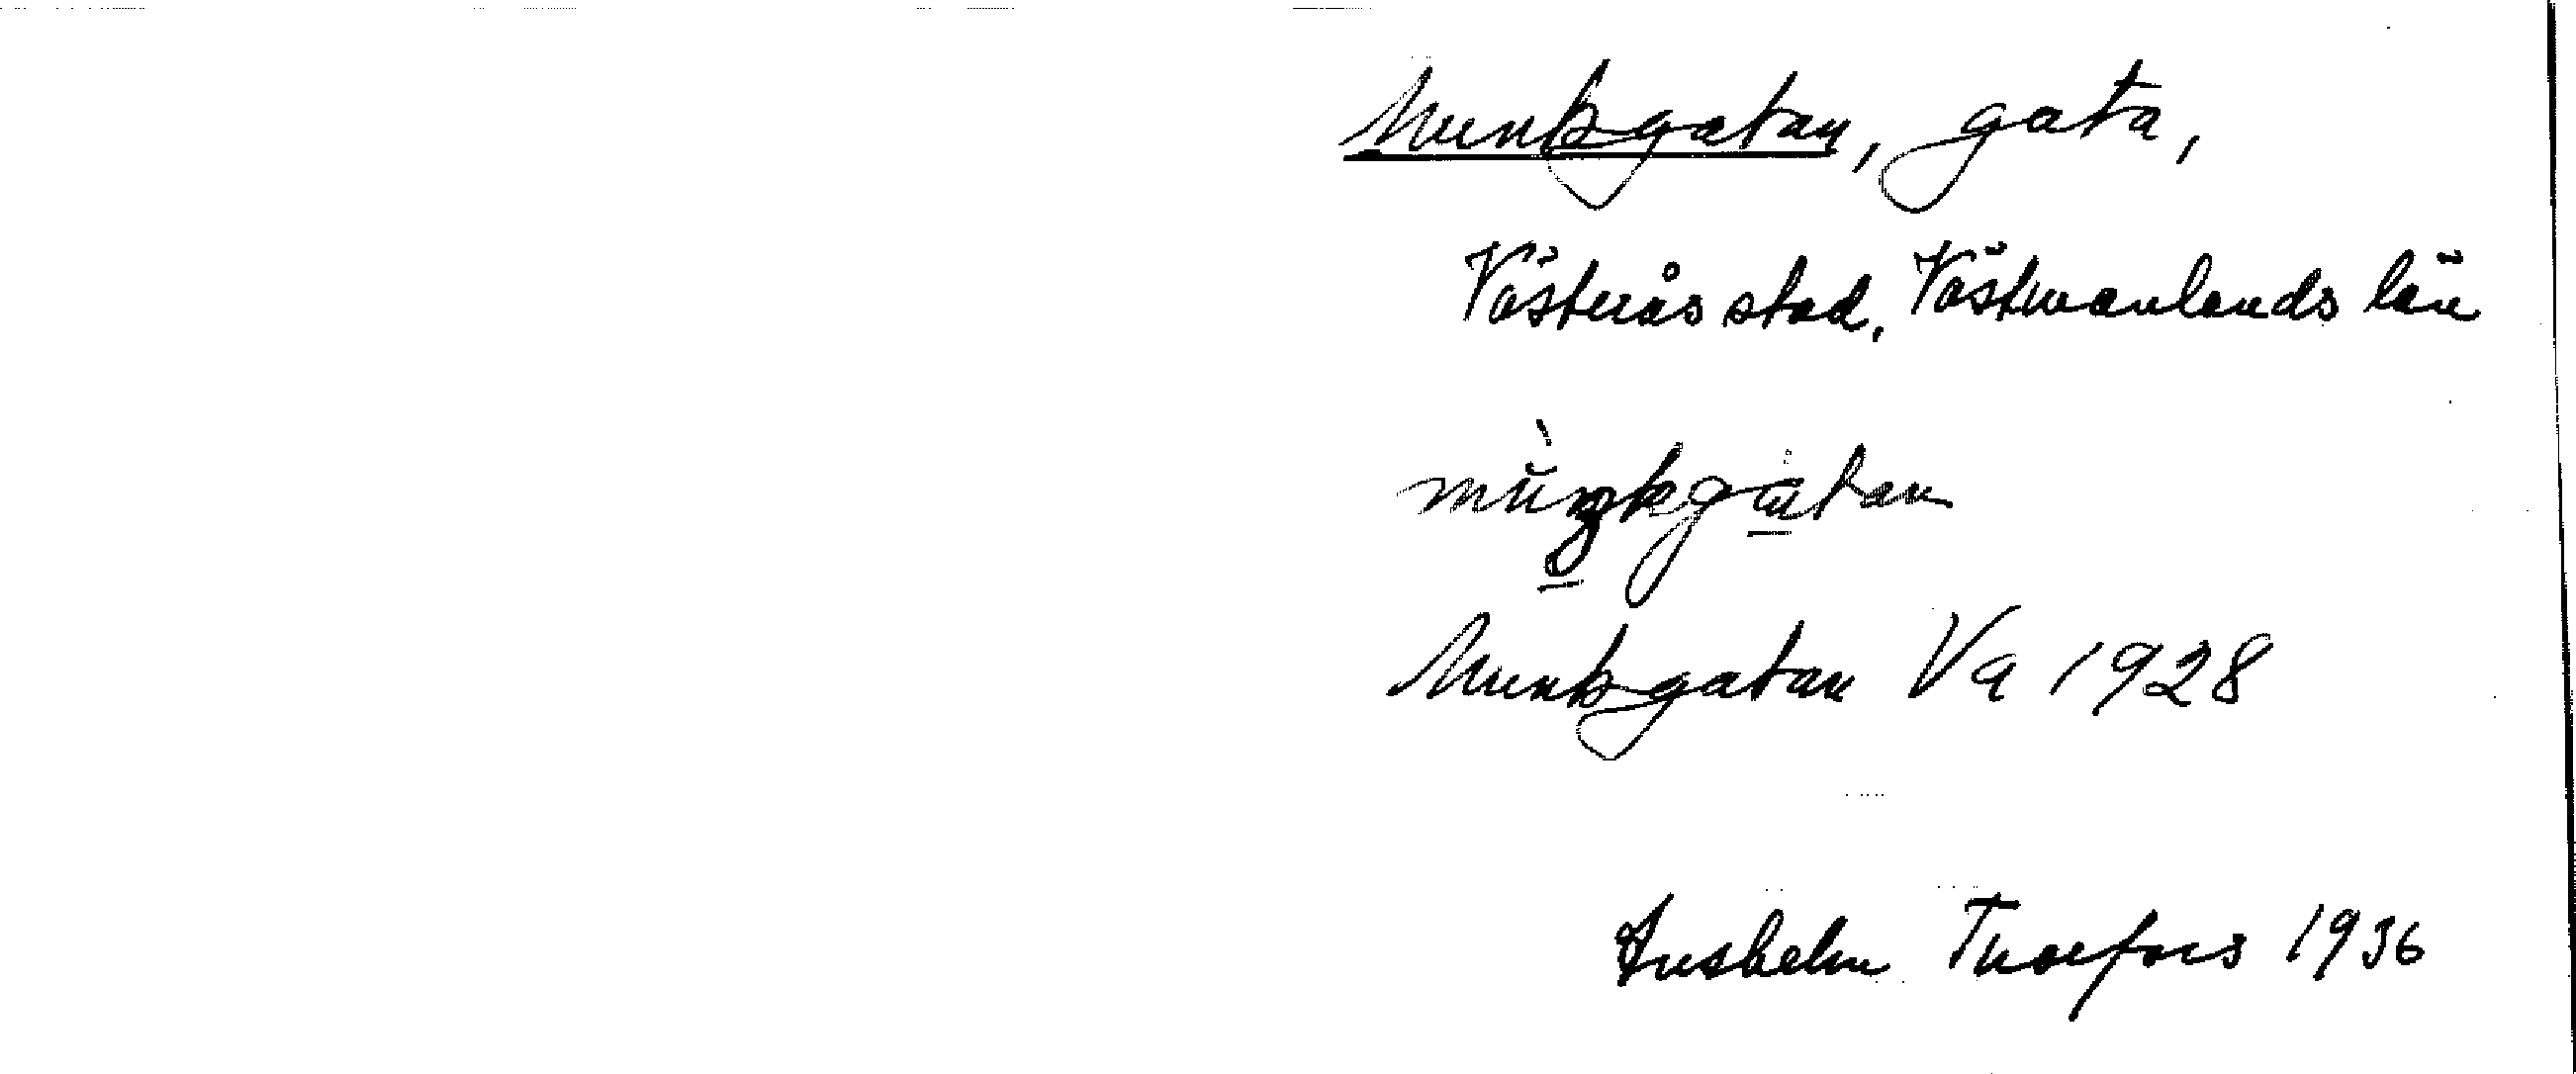 Munkgatan, gata,
Västerås stad, Västmanlands län
mùŋkgatan
Munkgatan Va 1928
Anshelm Thorfors 1936